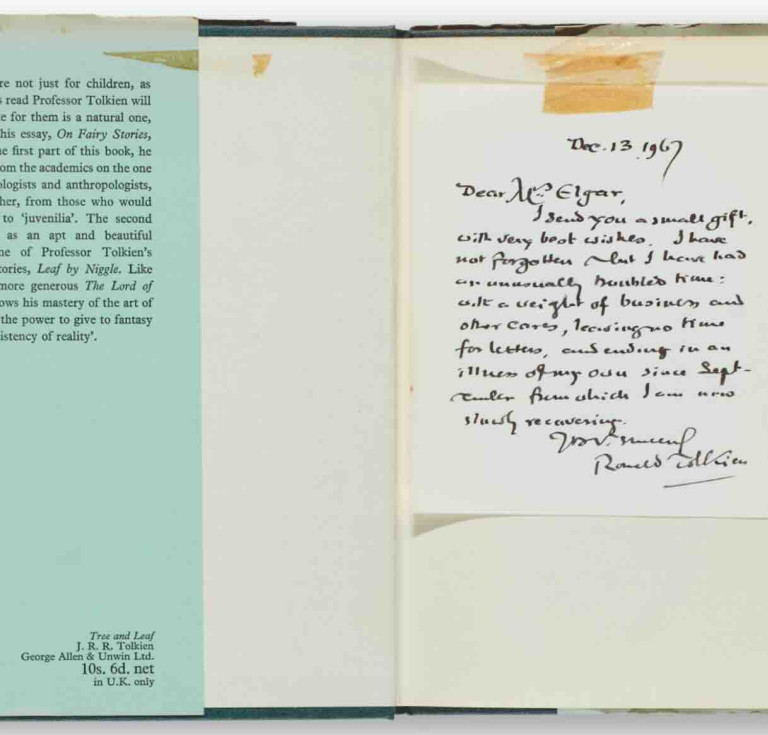 re not just for children, as
s read Professor Tolkien will
e for them is a natural one,
his essay, On Fairy Stories,
e first part of this book, he
om the academics on the one
ologists and anthropologists,
her, from those who would
to ‘juvenilia’. The second
as an apt and beautiful
ne of Professor Tolkien’s
tories, Leaf by Niggle. Like
more generous The Lord of
ows his mastery of the art of
the power to give to fantasy
istency of reality’.
Tree and Leaf
J. R. R. Tolkien
George Allen & Unwin Ltd.
10s. 6d. net
in U.K. only
Dec. 13. 1967
Dear Mrs Elgar,
I send you a small gift,
with very best wishes. I have
not forgotten – but I have had
an unusually troubled time:
with a weight of business and
other cares, leaving no time
for letters, and ending in an
illness of my own since Sept-
ember from which I am now
slowly recovering.
Yrs. sincerely
Ronald Tolkien